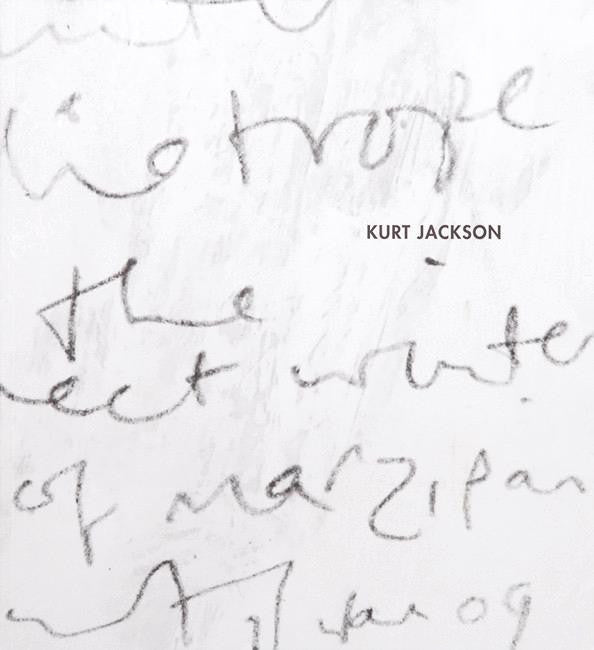 liotrope
KURT JACKSON
the
ect winter
of marzipan
Jan 09